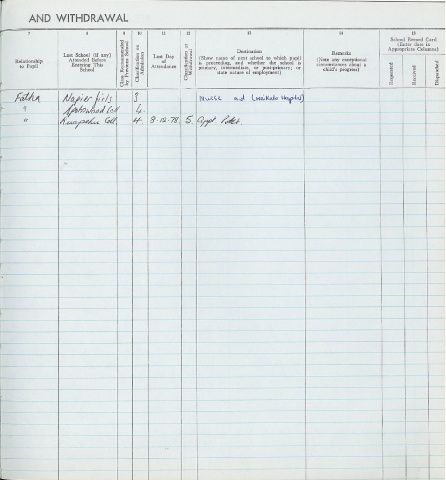 AND WITHDRAWAL
7 8 9 10 11 12 13 14 15
Relationship to Pupil
Last School (if any) Attended Before Entering This School
Class Recommended by Previous School
Classification on Admission
Last Day of Attendance
Classification at Withdrawal
Destination
(Show name of next school to which pupil is proceeding, and whether the school is primary, intermediate, or post-primary; or state nature of employment)
Remarks
(Note any exceptional circumstances about a child's progress)
School Record Card
(Enter date in Appropriate Columns)
Requested
Received
Dispatched
Father Napier Girls 3 Nurse aid (Waikato Hospital)
" Spotswood Coll 4
" Ruapehu Coll. 4. 8.12.78 5 Appt.